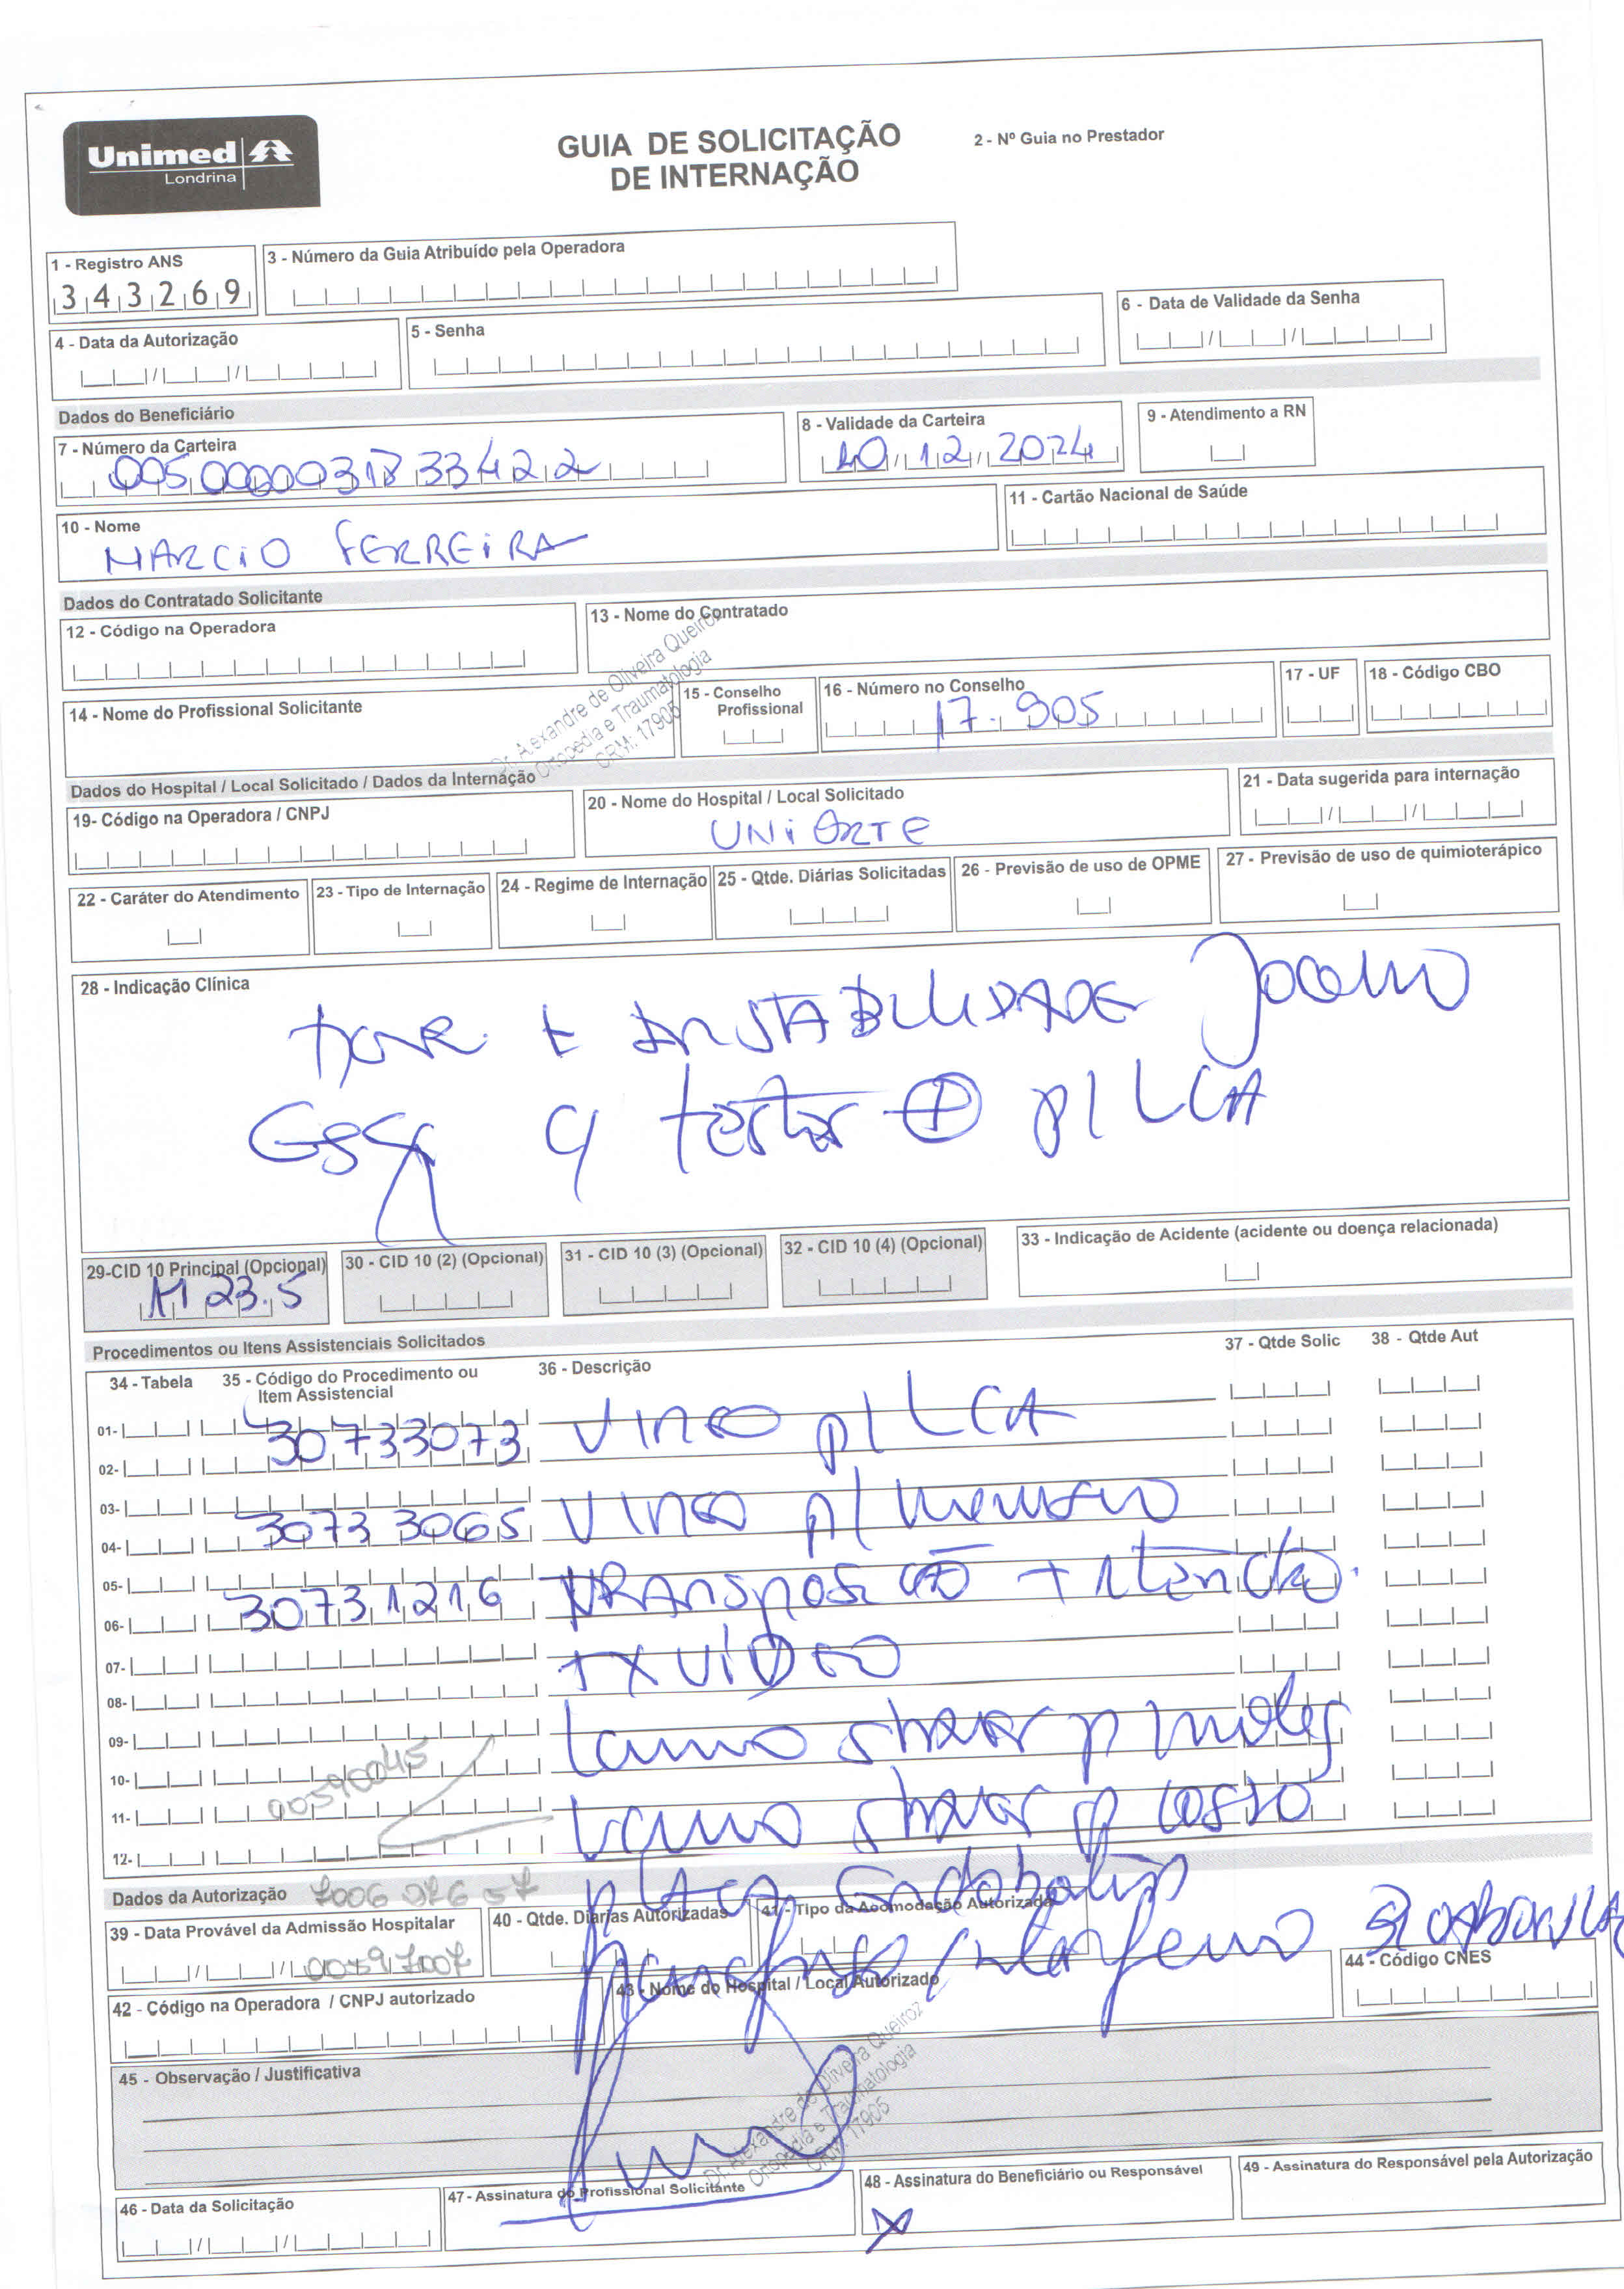 Unimed
Londrina
GUIA DE SOLICITAÇÃO
DE INTERNAÇÃO
2 - Nº Guia no Prestador
1 - Registro ANS
343269
3 - Número da Guia Atribuído pela Operadora
4 - Data da Autorização
5 - Senha
6 - Data de Validade da Senha
Dados do Beneficiário
7 - Número da Carteira
8 - Validade da Carteira
10/12/2024
9 - Atendimento a RN
10 - Nome
MARCIO FERREIRA
11 - Cartão Nacional de Saúde
Dados do Contratado Solicitante
12 - Código na Operadora
13 - Nome do Contratado
14 - Nome do Profissional Solicitante
Dr. Alexandre de Oliveira Queiroz
Ortopedia e Traumatologia
CRM: 17905
15 - Conselho
Profissional
16 - Número no Conselho
17.905
17 - UF
18 - Código CBO
Dados do Hospital / Local Solicitado / Dados da Internação
19- Código na Operadora / CNPJ
20 - Nome do Hospital / Local Solicitado
UNIORTE
21 - Data sugerida para internação
22 - Caráter do Atendimento
23 - Tipo de Internação
24 - Regime de Internação
25 - Qtde. Diárias Solicitadas
26 - Previsão de uso de OPME
27 - Previsão de uso de quimioterápico
28 - Indicação Clínica
INSTABILIDADE Joelho
Esq c/ testes ⊕ p/ LCA
29-CID 10 Principal (Opcional)
M 23.5
30 - CID 10 (2) (Opcional)
31 - CID 10 (3) (Opcional)
32 - CID 10 (4) (Opcional)
33 - Indicação de Acidente (acidente ou doença relacionada)
Procedimentos ou Itens Assistenciais Solicitados
34 - Tabela
35 - Código do Procedimento ou
Item Assistencial
36 - Descrição
37 - Qtde Solic
38 - Qtde Aut
01-
30733073 VIDEO p/ LCA
02-
03-
30733065 VIDEO p/ menisco
04-
05-
30731216 TRANSPOSIÇÃO + 1 tendão
06-
07-
TX VÍDEO
08-
09-
Lamina shaver p/ moles
10-
00590045
11-
Lamina shaver p/ osso
12-
Dados da Autorização
39 - Data Provável da Admissão Hospitalar
40 - Qtde. Diárias Autorizadas
41 - Tipo da Acomodação Autorizada
42 - Código na Operadora / CNPJ autorizado
43 - Nome do Hospital / Local Autorizado
44 - Código CNES
45 - Observação / Justificativa
Dr. Alexandre de Oliveira Queiroz
Ortopedia e Traumatologia
CRM: 17905
46 - Data da Solicitação
47 - Assinatura do Profissional Solicitante
48 - Assinatura do Beneficiário ou Responsável
X
49 - Assinatura do Responsável pela Autorização